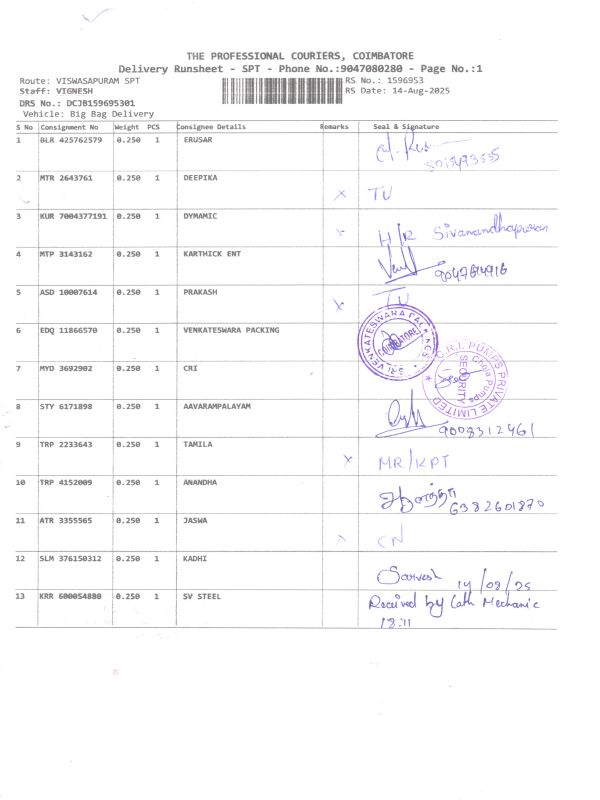 THE PROFESSIONAL COURIERS, COIMBATORE
Delivery Runsheet - SPT - Phone No.:9047080280 - Page No.:1
Route: VISWASAPURAM SPT RS No.: 1596953
Staff: VIGNESH RS Date: 14-Aug-2025
DRS No.: DCJB159695301
Vehicle: Big Bag Delivery
S No Consignment No Weight PCS Consignee Details Remarks Seal & Signature
1 BLR 425762579 0.250 1 ERUSAR
2 MTR 2643761 0.250 1 DEEPIKA x TU
3 KUR 7004377191 0.250 1 DYMAMIC x H/R Sivanandhapuram
4 MTP 3143162 0.250 1 KARTHICK ENT
5 ASD 10007614 0.250 1 PRAKASH x TU
6 EDQ 11866570 0.250 1 VENKATESWARA PACKING SRI VENKATESWARA PACKAGES COIMBATORE
7 MYD 3692902 0.250 1 CRI C.R.I. PUMPS PRIVATE LIMITED SECURITY
8 STY 6171898 0.250 1 AAVARAMPALAYAM 9008312461
9 TRP 2233643 0.250 1 TAMILA x MR/KPT
10 TRP 4152009 0.250 1 ANANDHA 6382601870
11 ATR 3355565 0.250 1 JASWA x CN
12 SLM 376150312 0.250 1 KADHI Sarvesh 14/08/25
13 KRR 600054880 0.250 1 SV STEEL Received by Lath Mechanic
18:11